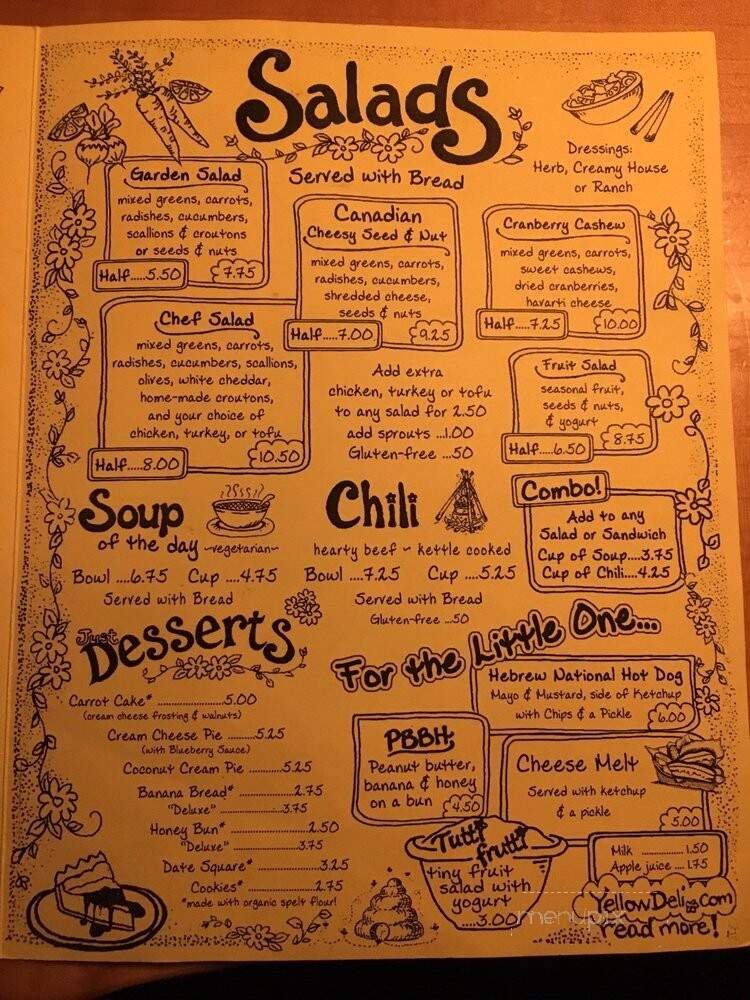 Salads
Served with Bread
Dressings:
Herb, Creamy House
or Ranch
Garden Salad
mixed greens, carrots,
radishes, cucumbers,
scallions & croutons
or seeds & nuts
Half.....5.50
7.75
Canadian
Cheesy Seed & Nut
mixed greens, carrots,
radishes, cucumbers,
shredded cheese,
seeds & nuts
Half.....7.00
9.25
Cranberry Cashew
mixed greens, carrots,
sweet cashews,
dried cranberries,
havarti cheese
Half.....7.25
10.00
Chef Salad
mixed greens, carrots,
radishes, cucumbers, scallions,
olives, white cheddar,
home-made croutons,
and your choice of
chicken, turkey, or tofu
Half.....8.00
10.50
Add extra
chicken, turkey or tofu
to any salad for 2.50
add sprouts ...1.00
Gluten-free ....50
Fruit Salad
seasonal fruit,
seeds & nuts,
& yogurt
Half.....6.50
8.75
Soup
of the day ~vegetarian~
Bowl ....6.75 Cup ....4.75
Served with Bread
Chili
hearty beef ~ kettle cooked
Bowl ....7.25 Cup ....5.25
Served with Bread
Gluten-free ...50
Combo!
Add to any
Salad or Sandwich
Cup of Soup....3.75
Cup of Chili....4.25
Just
Desserts
Carrot Cake* ........................5.00
(cream cheese frosting & walnuts)
Cream Cheese Pie ..........5.25
(with Blueberry Sauce)
Coconut Cream Pie ............5.25
Banana Bread* ....................2.75
"Deluxe" ....................3.75
Honey Bun* ........................2.50
"Deluxe" ....................3.75
Date Square* ......................3.25
Cookies* ........................2.75
*made with organic spelt flour!
For the Little One...
Hebrew National Hot Dog
Mayo & Mustard, side of Ketchup
with Chips & a Pickle
6.00
PBBH
Peanut butter,
banana & honey
on a bun
4.50
Cheese Melt
Served with ketchup
& a pickle
5.00
Tutti
frutti
tiny fruit
salad with
yogurt
....3.00
Milk ................1.50
Apple juice ....1.75
YellowDeli.com
read more!
menupix